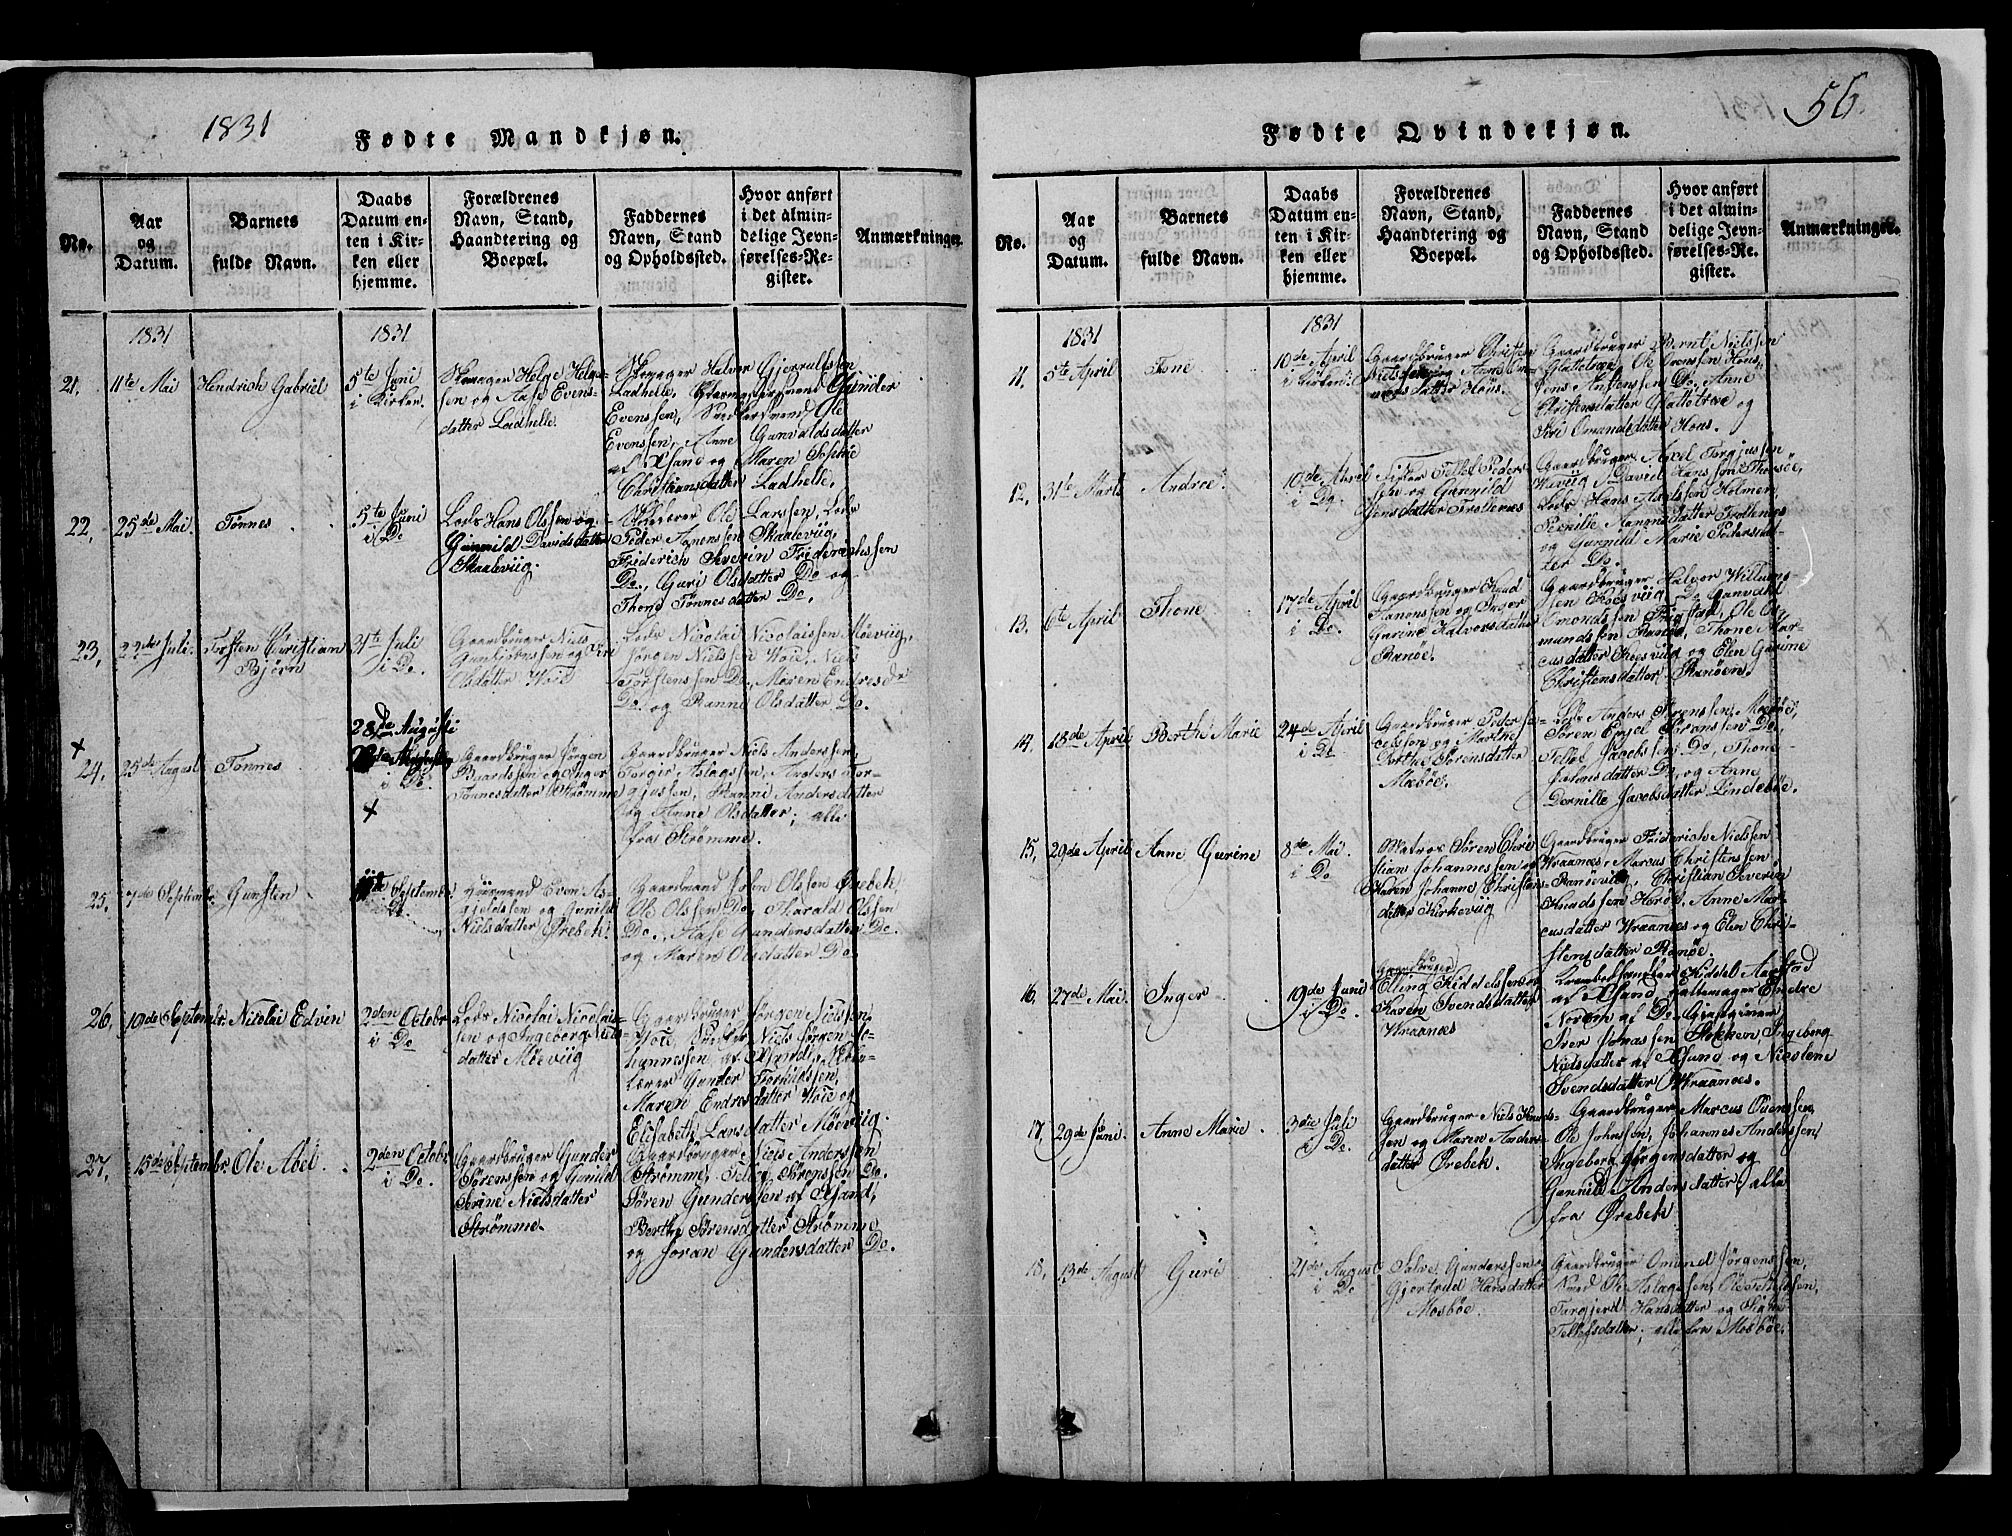 1831
Fødte Mandkjøn.
No.
Aar
og
Datum.
Barnets
fulde Navn.
Daabs
Datum en-
ten i Kir-
ken eller
hjemme.
Forældrenes
Navn, Stand,
Haandtering og
Boepæl.
Faddernes
Navn, Stand
og Opholdssted.
Hvor anført
i det almin-
delige Jevn-
førelses-Re-
gister.
Anmærkninger.
1831
1831
21.
11te Mai
Hendrich Gabriel
5te Juni
i Kirken.
Helge Helge-
sen og Aase Evens-
datter Ladhelle.
Halvor Gjerruldssen
Ladhelle, Gunder
Evenssen, Ole
Evenssen, Anne Gunvaldsdatter
af Xsand og Maren Sophie
Christiansdatter Ladhelle.
22,
25de Mai
Tønnes
5te Juni
i Do
Lods Hans Olssen og
Gunnild Davidsdatter
Skaaleviig.
Ole Larssen, Lods
Peder Aanenssen Skaaleviig,
Friderich Severin Friderichssen
Do, Guri Olsdatter Do og
Thone Tønnesdatter Do.
23,
22de Juli
Torsten Christian
Bjørn
31te Juli
i Do.
Gaardbruger Niels
Gunbjørnssen og Siri
Olsdatter Woie
Lods Nicolai Nicolaissen Møeviig,
Jørgen Nielssen Woie, Niels
Torstenssen Do, Maren Endresdr
Do og Ranne Olsdatter Do.
24,
25de August
Tønnes
28de Augusti
i Do.
Gaardbruger Jørgen
Baardssen og Inger
Tønnesdatter Strømme
Gaardbruger Niels Anderssen,
Torgir Aslagssen, Anders Tor-
gjussen, Ranni Andersdatter
og Anne Olsdatter; alle
fra Strømme.
25.
7de Septembr
Gunsten
11te Septembr
i Do.
Huusmand Even As-
gjeldssen og Gunild
Nielsdatter Ørebek.
Gaardmand John Olssen Ørebek,
Ole Olssen Do, Tharald Olssen
Do, Aase Gundersdatter Do.
og Maren Olsdatter Do.
26,
10de Septembr
Nicolai Edvin
2den Octobr
i Do
Lods Nicolai Nicolais-
sen og Ingeborg Niels-
datter Møeviig
Gaardbruger Jørgen Nielssen
Woie, Niels Jørgen Jo-
hannessen
Gunder Tormodssen,
Maren Endresdatter Woie og
Elisabeth Larsdatter Møeviig.
27.
15de Septembr
Ole Abel
2den Octobr
i Do.
Gaardbruger Gunder
Sørenssen og Gunild
Serine Nielsdatter
Strømme.
Gaardbruger Niels Anderssen
Strømme, Tellef Sørenssen Do.
Søren Gunderssen af Xsand,
Berthe Sørensdatter Strømme
og Joran Gundersdatter Do.
56.
Fødte Qvindekjøn.
No.
Aar
og
Datum.
Barnets
fulde Navn.
Daabs
Datum en-
ten i Kir-
ken eller
hjemme.
Forældrenes
Navn, Stand,
Haandtering og
Boepæl.
Faddernes
Navn, Stand
og Opholdssted.
Hvor anført
i det almin-
delige Jevn-
førelses-Re-
gister.
Anmærkninger.
1831
1831
11.
5te April
Tone
10de April
i Kirken
Gaardbruger Christen
Nielssen og Anne Om-
undsdatter Høus.
Gaardbruger Bernt Nielssen
Glattetræ, Ole
Anfenssen Do, Anne
Christensdatter Glattetræ og
Siri Omundsdatter Høus.
12,
31te Marts
Andrea.
10de April
i Do.
Fisker Tellef Peders-
sen og Gunnild
Jensdatter Trottenæs
Gaardbruger Axel Torgjussen
David Hanssen
Lods Hans Axelssen Holmen,
Pernille Aanonsdatter Trottenæs
og Gunnild Marie Pedersdat-
ter Do.
13.
6te April
Thone
17de April
i Do.
Gaardbruger Knud
Aanonssen og Inger
Gurine Halvorsdatter
Ranøe.
Gaardbruger Halvor Willums-
sen Koesviig, Do Gunvald
Omundssen Frigstad, Ole Os-
mundssen Ranøe, Thone Mar-
cusdatter Koesviig og Elen Gurine
Christensdatter Ranøen.
14.
18de April
Berthe Marie
24de April
i Do
Gaardbruger Peder Ja-
cobssen og Marthe
Dorthe Sørensdatter
Mæbøe.
Lods Anders Sørenssen Mæbøe,
Søren Engel Sørenssen Do,
Tellef Jacobssen Do, Thone
Johnsdatter Do, og Anne
Pernille Jacobsdatter Lindebøe.
15,
29de April
Anne Gurine
8de Mai
i Do.
Matros Søren Chri-
stian Johannessen og
Karen Johanne Christens-
datter Kirkeviig
Gaardbruger Friderich Nielssen
Wraanæs, Marcus Christenssen
Ranøeviig, Christian Severin
Knudssen Herøe, Anne Mar-
cusdatter Wraanæs og Elen Chri-
stensdatter Ranøe.
16.
27de Mai.
Inger
19de Juni
i Do.
Gaardbruger
Elling Kiddelssen og
Karen Svendsdatter
Wraanæs
Kiddel Aagstad
af Xsand, Endre
Noreen af Do. Giestgiver
Iver Jonassen Stokken, Ingeborg
Nielsdatter af Xsand og Nicolene
Svendsdatter Wraanæs.
17,
29de Juni.
Anne Marie
3die Juli
i Do.
Gaardbruger Niels Knuds-
sen og Maren Anders-
datter Ørebek.
Gaardbruger Marcus Ouenssen,
Ole Johnssen, Johannes Anderssen,
Ingeborg Jørgensdatter og
Gunnild Andersdatter, alle
fra Ørebek
18,
13de August
Guri
21de August
i Do
Salve Gunderssen og
Gjertrud Hansdatter
Mosbøe
Gaardbruger Omund Jørgenssen,
Smed Ole Aslagssen, Ole Tellefssen,
Torgjerd Hansdatter og Signe
Tellefsdatter; alle fra Mosbøe.